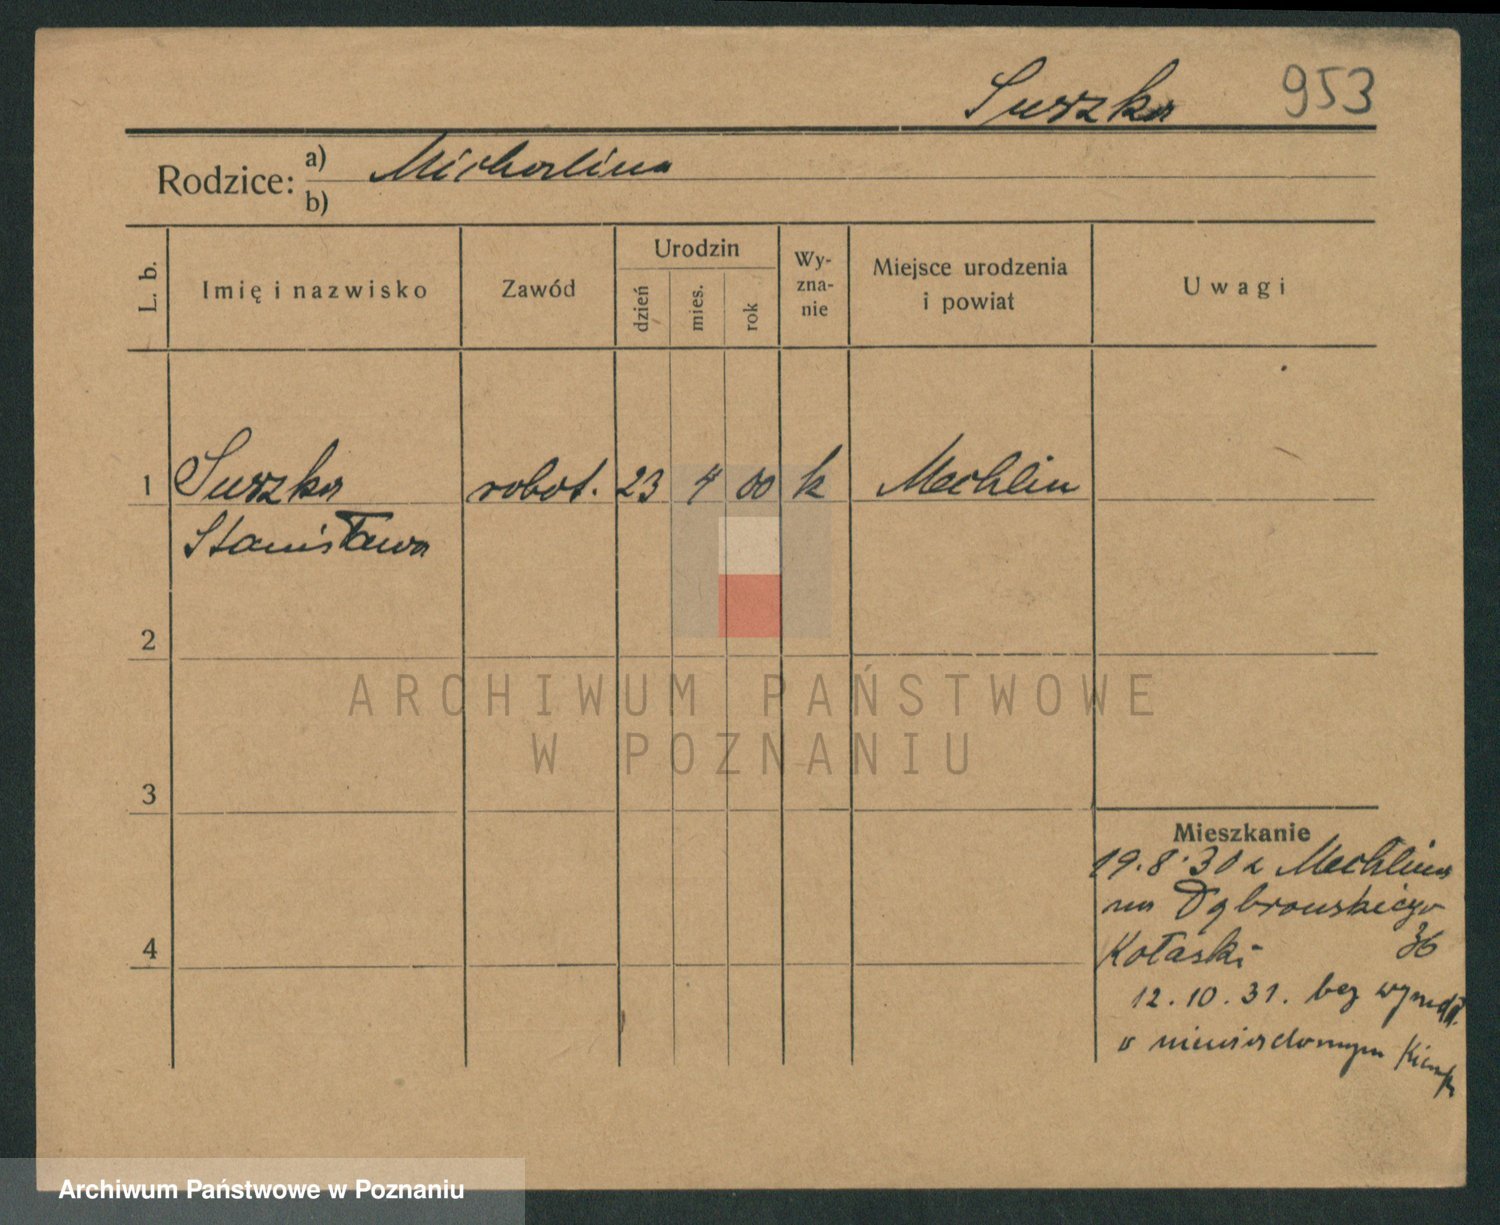 Suszka 953
Rodzice: a) Michalina
b)
L. b. Imię i nazwisko Zawód Urodzin dzień mies. rok Wyzna-nie Miejsce urodzenia i powiat Uwagi
1 Suszka robot. 23 4 00 k Mechlin
Stanisława
2
ARCHIWUM PAŃSTWOWE
W POZNANIU
3
Mieszkanie
19.8.30 z Mechlina
na Dąbrowskiego
36
4 Kołaski
12.10.31. bez
w niewiadomym
Archiwum Państwowe w Poznaniu